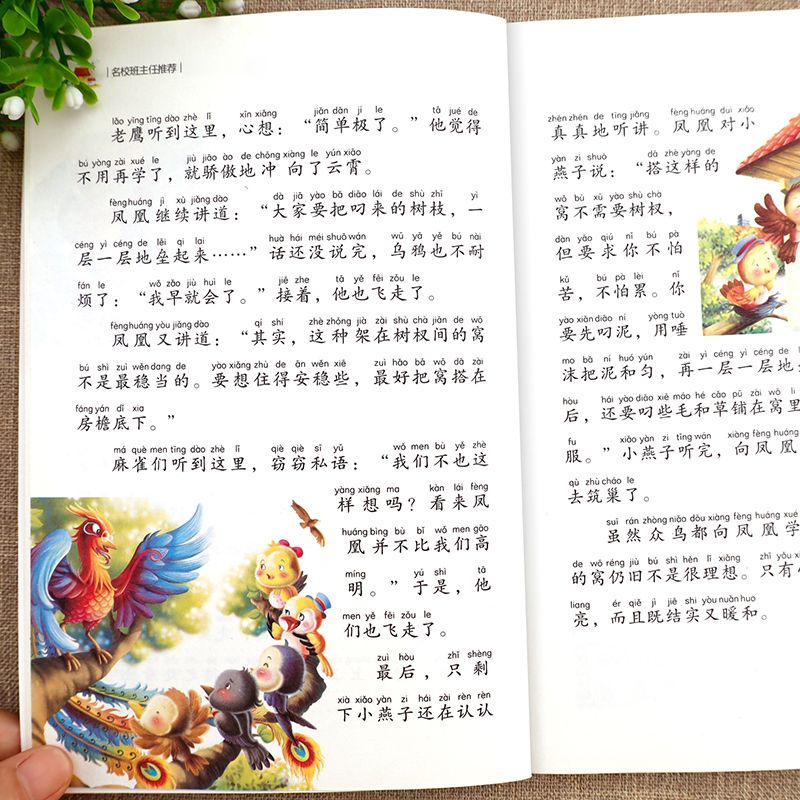 名校班主任推荐
lǎo yīng tīng dào zhè lǐ xīn xiǎng jiǎn dān jí le tā jué de
老鹰听到这里，心想：“简单极了。”他觉得
bú yòng zài xué le jiù jiāo ào de chōng xiàng le yún xiāo
不用再学了，就骄傲地冲向了云霄。
fèng huáng jì xù jiǎng dào dà jiā yào bǎ diāo lái de shù zhī yì
凤凰继续讲道：“大家要把叼来的树枝，一
céng yì céng de lěi qi lai huà hái méi shuō wán wū yā yě bú nài
层一层地垒起来……”话还没说完，乌鸦也不耐
fán le wǒ zǎo jiù huì le jiē zhe tā yě fēi zǒu le
烦了：“我早就会了。”接着，他也飞走了。
fèng huáng yòu jiǎng dào qí shí zhè zhǒng jià zài shù chà jiān de wō
凤凰又讲道：“其实，这种架在树杈间的窝
bú shì zuì wěn dang de yào xiǎng zhù de ān wěn xiē zuì hǎo bǎ wō dā zài
不是最稳当的。要想住得安稳些，最好把窝搭在
fáng yán dǐ xia
房檐底下。”
má què men tīng dào zhè lǐ qiè qiè sī yǔ wǒ men bù yě zhè
麻雀们听到这里，窃窃私语：“我们不也这
yàng xiǎng ma kàn lái fèng
样想吗？看来凤
huáng bìng bù bǐ wǒ men gāo
凰并不比我们高
míng yú shì tā
明。”于是，他
men yě fēi zǒu le
们也飞走了。
zuì hòu zhǐ shèng
最后，只剩
xià xiǎo yàn zi hái zài rèn rèn
下小燕子还在认认
zhēn zhēn de tīng jiǎng fèng huáng duì xiǎo
真真地听讲。凤凰对小
yàn zi shuō dā zhè yàng de
燕子说：“搭这样的
wō bù xū yào shù chà
窝不需要树杈，
dàn yāo qiú nǐ bú pà
但要求你不怕
kǔ bú pà lèi nǐ
苦，不怕累。你
yào xiān diāo ní yòng tuò
要先叼泥，用唾
mo bǎ ní huó yún zài yì céng yì céng de lě
沫把泥和匀，再一层一层地
hòu hái yào diāo xiē máo hé cǎo pū zài wō li
后，还要叼些毛和草铺在窝里
fu xiǎo yàn zi tīng wán xiàng fèng huáng
服。”小燕子听完，向凤凰
qù zhù cháo le
去筑巢了。
suī rán zhòng niǎo dōu xiàng fèng huáng xué
虽然众鸟都向凤凰学
de wō réng jiù bú shì hěn lǐ xiǎng zhǐ yǒu
的窝仍旧不是很理想。只有
liang ér qiě jì jiē shi yòu nuǎn huo
亮，而且既结实又暖和。